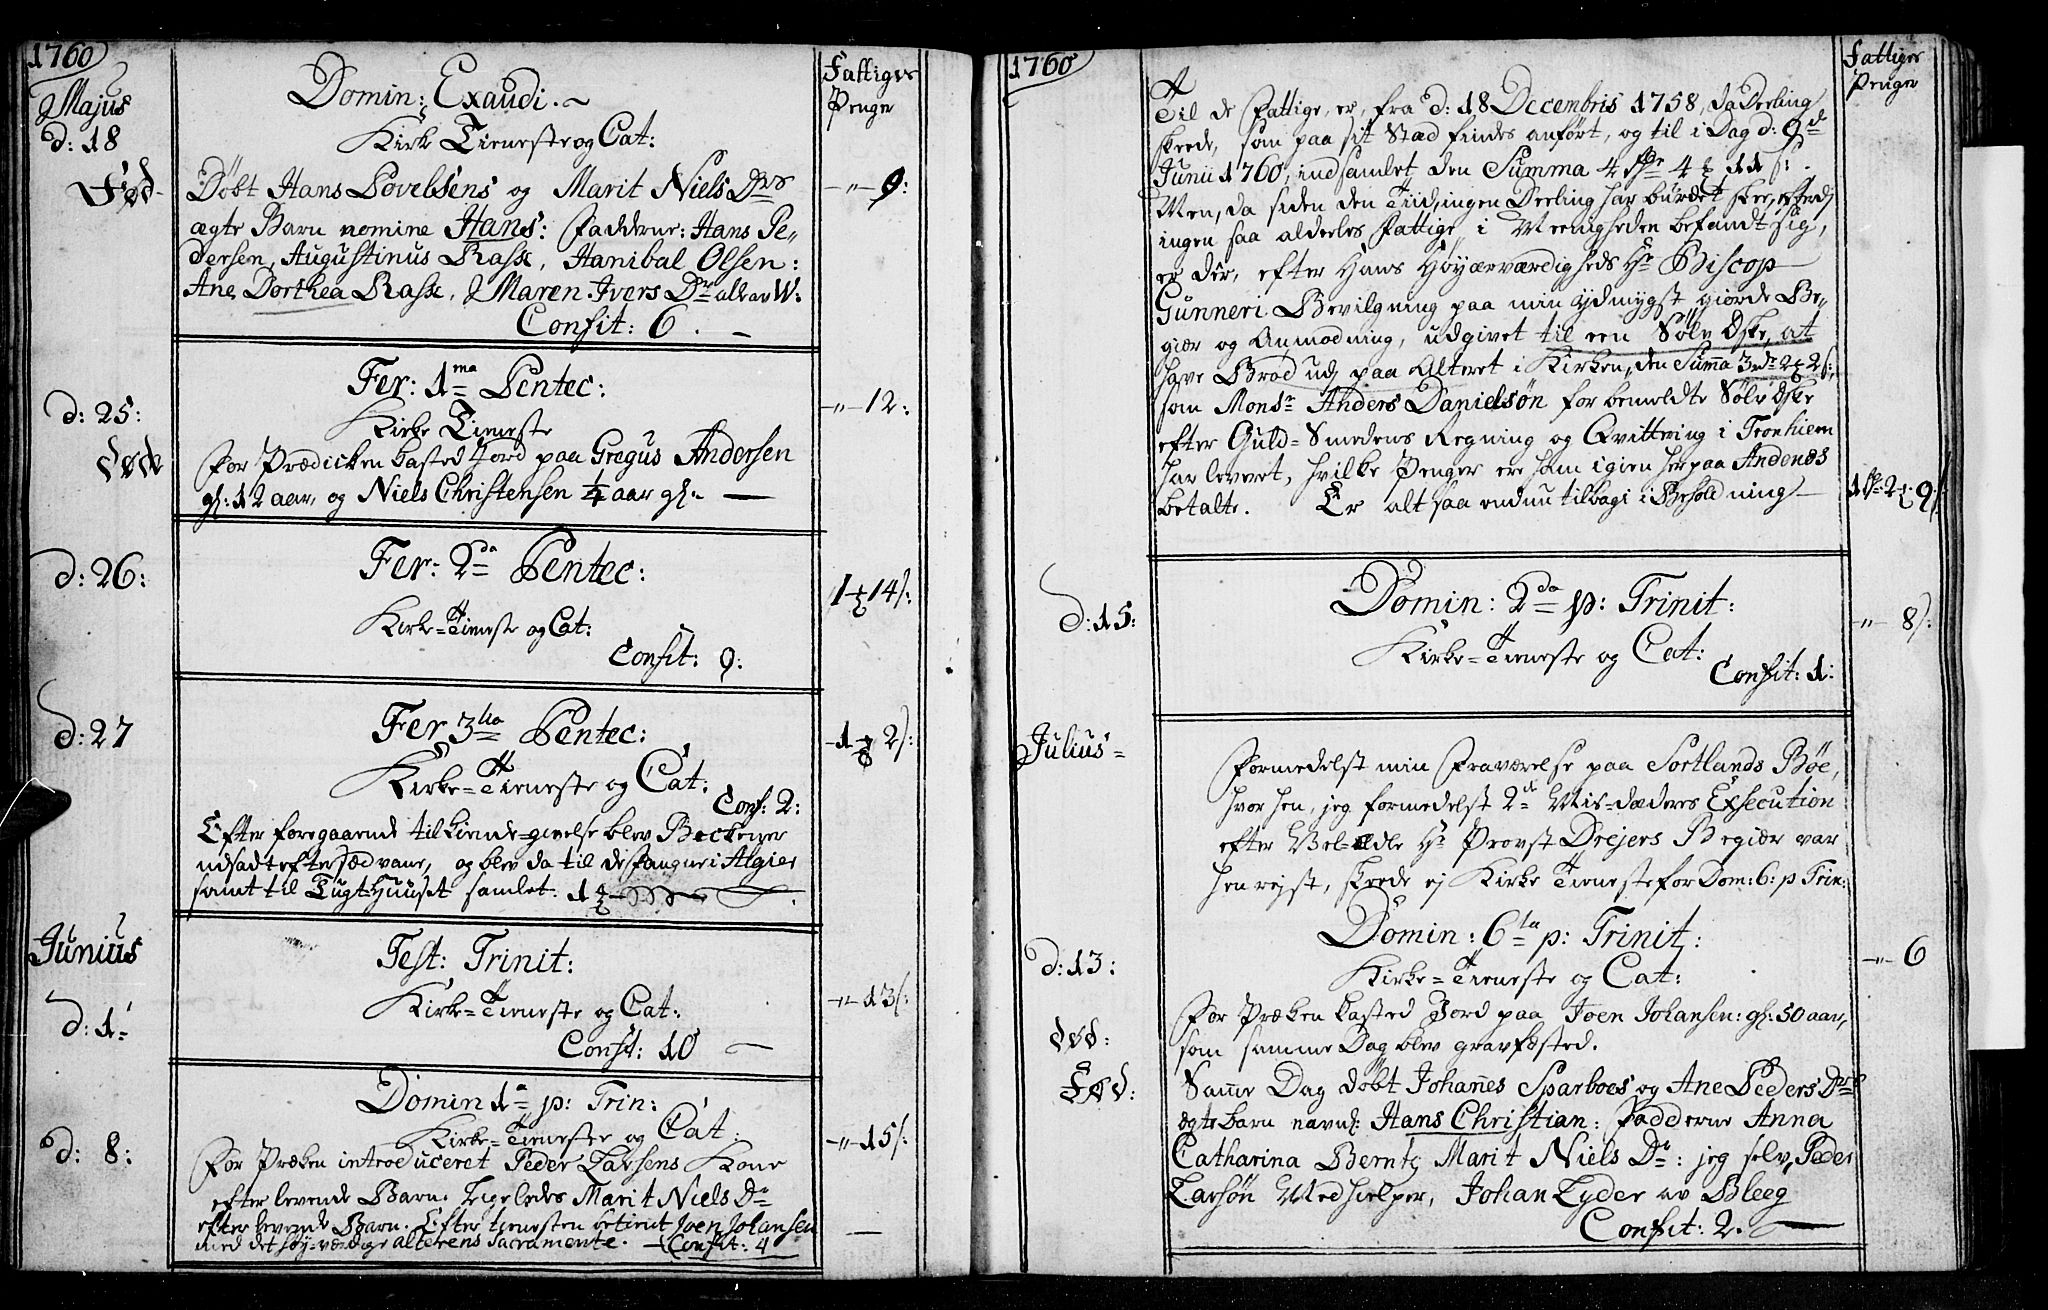 1760
Majus
d: 18
Fattiges
Penge
Domin: Exaudi.
Kirke Tieneste og Cat:
Fød
Døbt Hans Lovelsens og Marit Niels Drs
-"- 9:
ægte Barn nomine Hans: Fadderne: Hans Pe-
dersen, Augustinus Rasx, Hanibal Olsen:
Ane Dorthea Rasx, Maren Ivers Dr alle av W:
Confit: 6.
d: 25:
Fer: 1ma Pentec:
-"- 12:
Kirke Tieneste
døde
For Prædicken kasted Jord paa Gregus Andersen
gl: 12 aar, og Niels Christensen 1/4 aar gl:
d: 26:
Fer: 2da Pentec:
1 14 s:
Kirke-Tieneste og Cat:
Confit: 9:
d: 27
Fer 3tia Pentec:
-1 2 s:
Kirke-Tieneste og Cat:
Conf: 2:
Efter foregaaende tilkiende-givelse blev Beckener
udsadt efter sædvane, og blev da til de fangne i Algier
samt til Tugt-Huuset samlet: 1
Junius
d: 1
Fest: Trinit:
-"- 13 s:
Kirke-Tieneste og Cat:
Confit: 10
Domin 1a p: Trin:
d: 8:
Kirke-Tieneste og Cat:
-"- 15 s:
For Præken introduceret Peder Larsens Kone
efter levende Barn. Ligeledes Marit Niels Dr
efter levende Barn. Efter tienesten betient Joen Johansen
med det høy-værdige alterens Sacramente. Confit: 4
1760
Fattiges
Penger
Til de Fattige, er, fra d: 18 Decembris 1758, da Deeling
skeede, som paa sit Stæd findes anført, og til i Dag d: 9de
Junii 1760, indsamlet den Summa 4 4 11 s:
Men, da siden den Tiid, ingen Deeling har burdet skee, efterdj
ingen saa aldeeles Fattige i Meenigheden befandt sig,
er der, efter Hans Høyærværdigheds Hr Biscop
Gunneri Bevilgning paa min ydmygst giorde Be-
giær og Anmodning, udgivet til een Sølv Æske, at
have Brød udj paa Alteret i Kirken, den Suma 3 2 2 s:
som Monsr Anders Danielsøn for bemeldte Sølv Æske
efter Guld-Smedens Regning og Qvittering i Tronhiem
har leveret, hvilke Penger ere ham igien her paa Andenes
betalte. Er alt saa endnu tilbage i Beholdning
1 2 9 s
d: 15:
Domin: 2da p: Trinit:
-"- 8 s:
Kirke-Tieneste og Cat:
Confit: 1:
Julius
Formedelst min Fraværelse paa Sortlands Bøe,
hvor hen, jeg formedelst 2de Mis-dæderes Exsecution
efter Vel-Ædle Hr Provst Drejers Begiær var
hen rejst, skeede ej Kirke Tieneste for Dom: 6: p Trin:
Domin: 6ta p: Trinit:
d: 13:
-"- 6
Kirke-Tieneste og Cat:
For Præken kasted Jord paa Joen Johansen: gl: 50 aar,
død:
som samme Dag blev gravfæsted.
Fød:
Same Dag døbt Johanes Sparboes og Ane Peders Drs
ægte barn navnl: Hans Christian: Fadderne Anna
Catharina Berntz Marit Niels Dr: jeg selv, Peder
Larsøn Medhielper, Johan Lyder av Bleeg
Confit: 2.